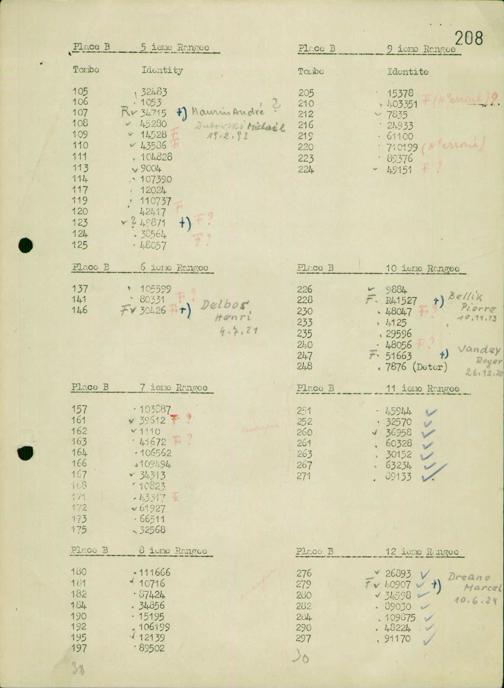 208
Place B 5 ieme Rangee
Tombe Identity
105 32483
106 1053
107 R✓ 34715 +) Maurin André ?
108 ✓ 45280 Michaël
109 14528 F
110 ✓ 43586 F
111 104828
113 ✓ 9004
114 107390
117 12024
119 110737
120 42417 F
123 ✓ ? 49871 +)
124 38564 F?
125 48057
Place B 6 ieme Rangee
137 105599
141 80331 F?
146 F✓ 30426 F +) Delbos
Henri
4.7.21
Place B 7 ieme Rangee
157 103087
161 ✓ 39612 F ?
162 ✓ 1110
163 41672 F ?
164 106562
166 109494
167 ✓ 34313
168 10823
171 43317 F
172 ✓ 61927
173 66511
175 32568
Place B 8 ieme Rangee
180 111666
181 10716
182 87424
184 34856
190 15195
192 106199
195 12139
197 89502
30
Place B 9 ieme Rangee
Tombe Identite
205 15378
210 403351
212 ✓ 7835
216 24933
219 61100
220 710199
223 89376
224 49151 F ?
Place B 10 ieme Rangee
226 ✓ 9884
228 F. R41527 +) Bellik
Pierre
230 48047 F?
10.11.13
233 4125
235 29596
240 48056 F?
247 F. 51663 +) Vanday
Roger
248 7876 (Doter)
Place B 11 ieme Rangee
251 45944 ✓
252 32570 ✓
260 ✓ 36958 ✓
261 60328 ✓
263 30152 ✓
267 63234 ✓
271 89133 ✓
Place B 12 ieme Rangee
276 ✓ 26893 ✓
279 F✓ 40907 ✓ +) Dreano
Marcel
280 ✓ 34898 ✓
10.6.24
282 89030 ✓
284 109875 ✓
290 48224 ✓
297 91170 ✓
30